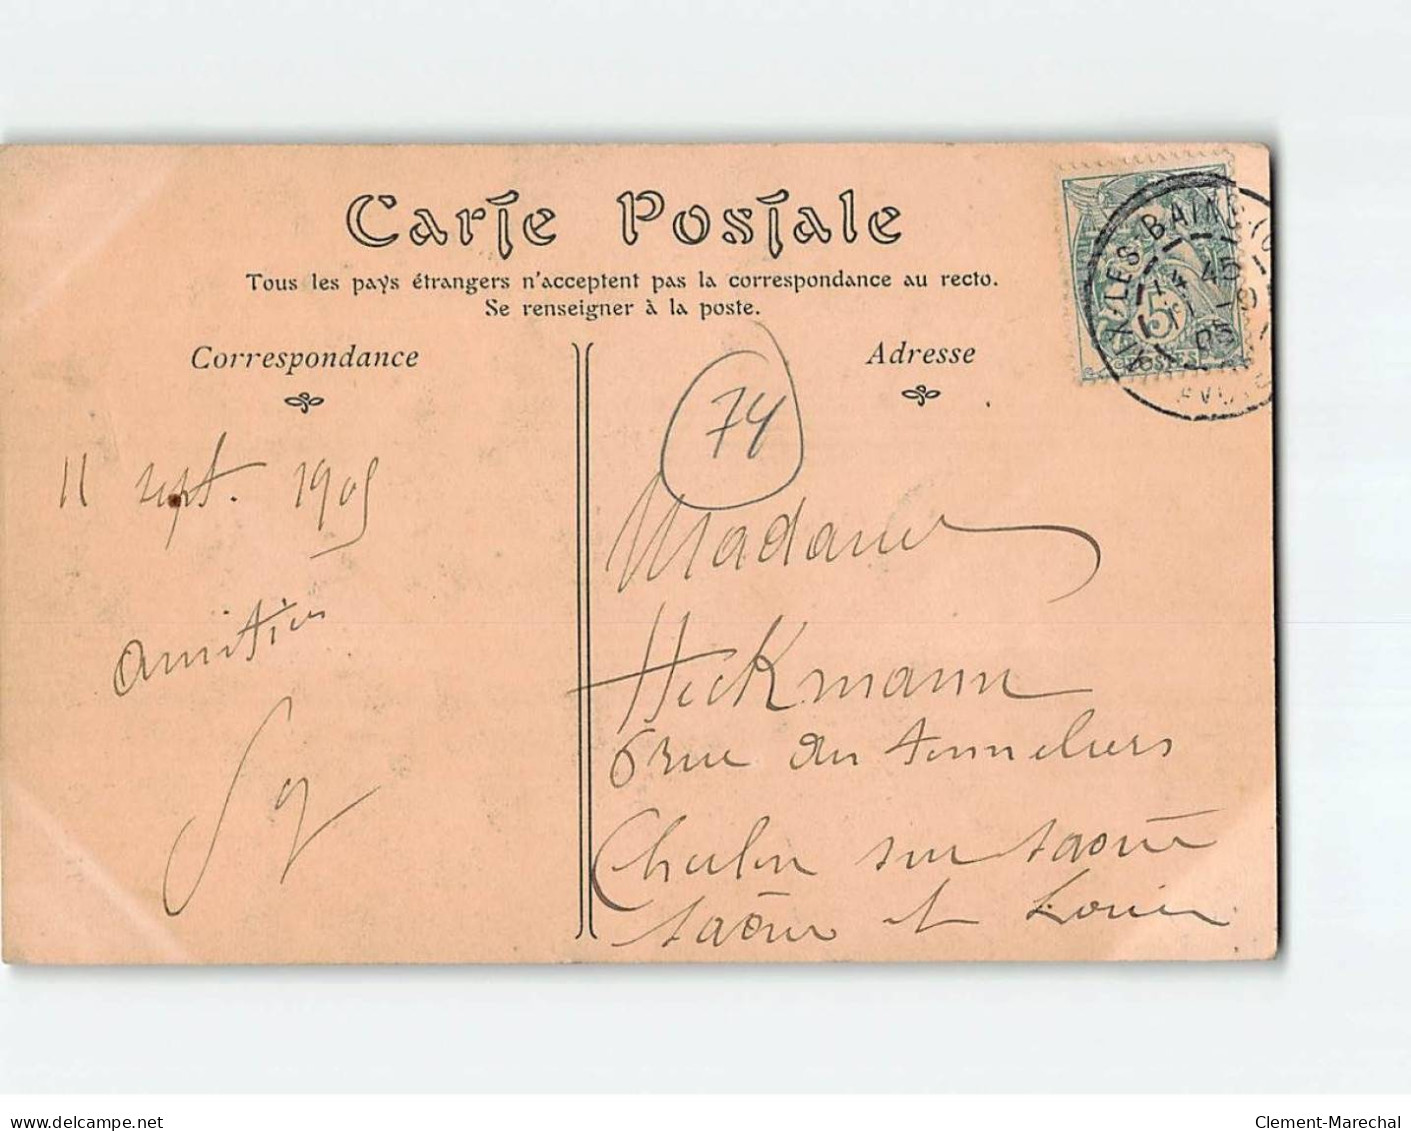 Carte Postale
Tous les pays étrangers n'acceptent pas la correspondance au recto.
Se renseigner à la poste.
Correspondance
Adresse
74
11 sept. 1905
amitiés
Madame
Heckmann
6 rue des tonneliers
Chalon sur saône
saône et Loire
LES-BAINS
14 45
11 -9
05
5c
POSTES
www.delcampe.net
Clement-Marechal